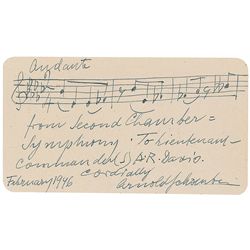 Andante
from Second Chamber=
Symphony. To Lieutenant-
commander(S) A.R. Davis.
Cordially
February 1946 Arnold Schoenberg